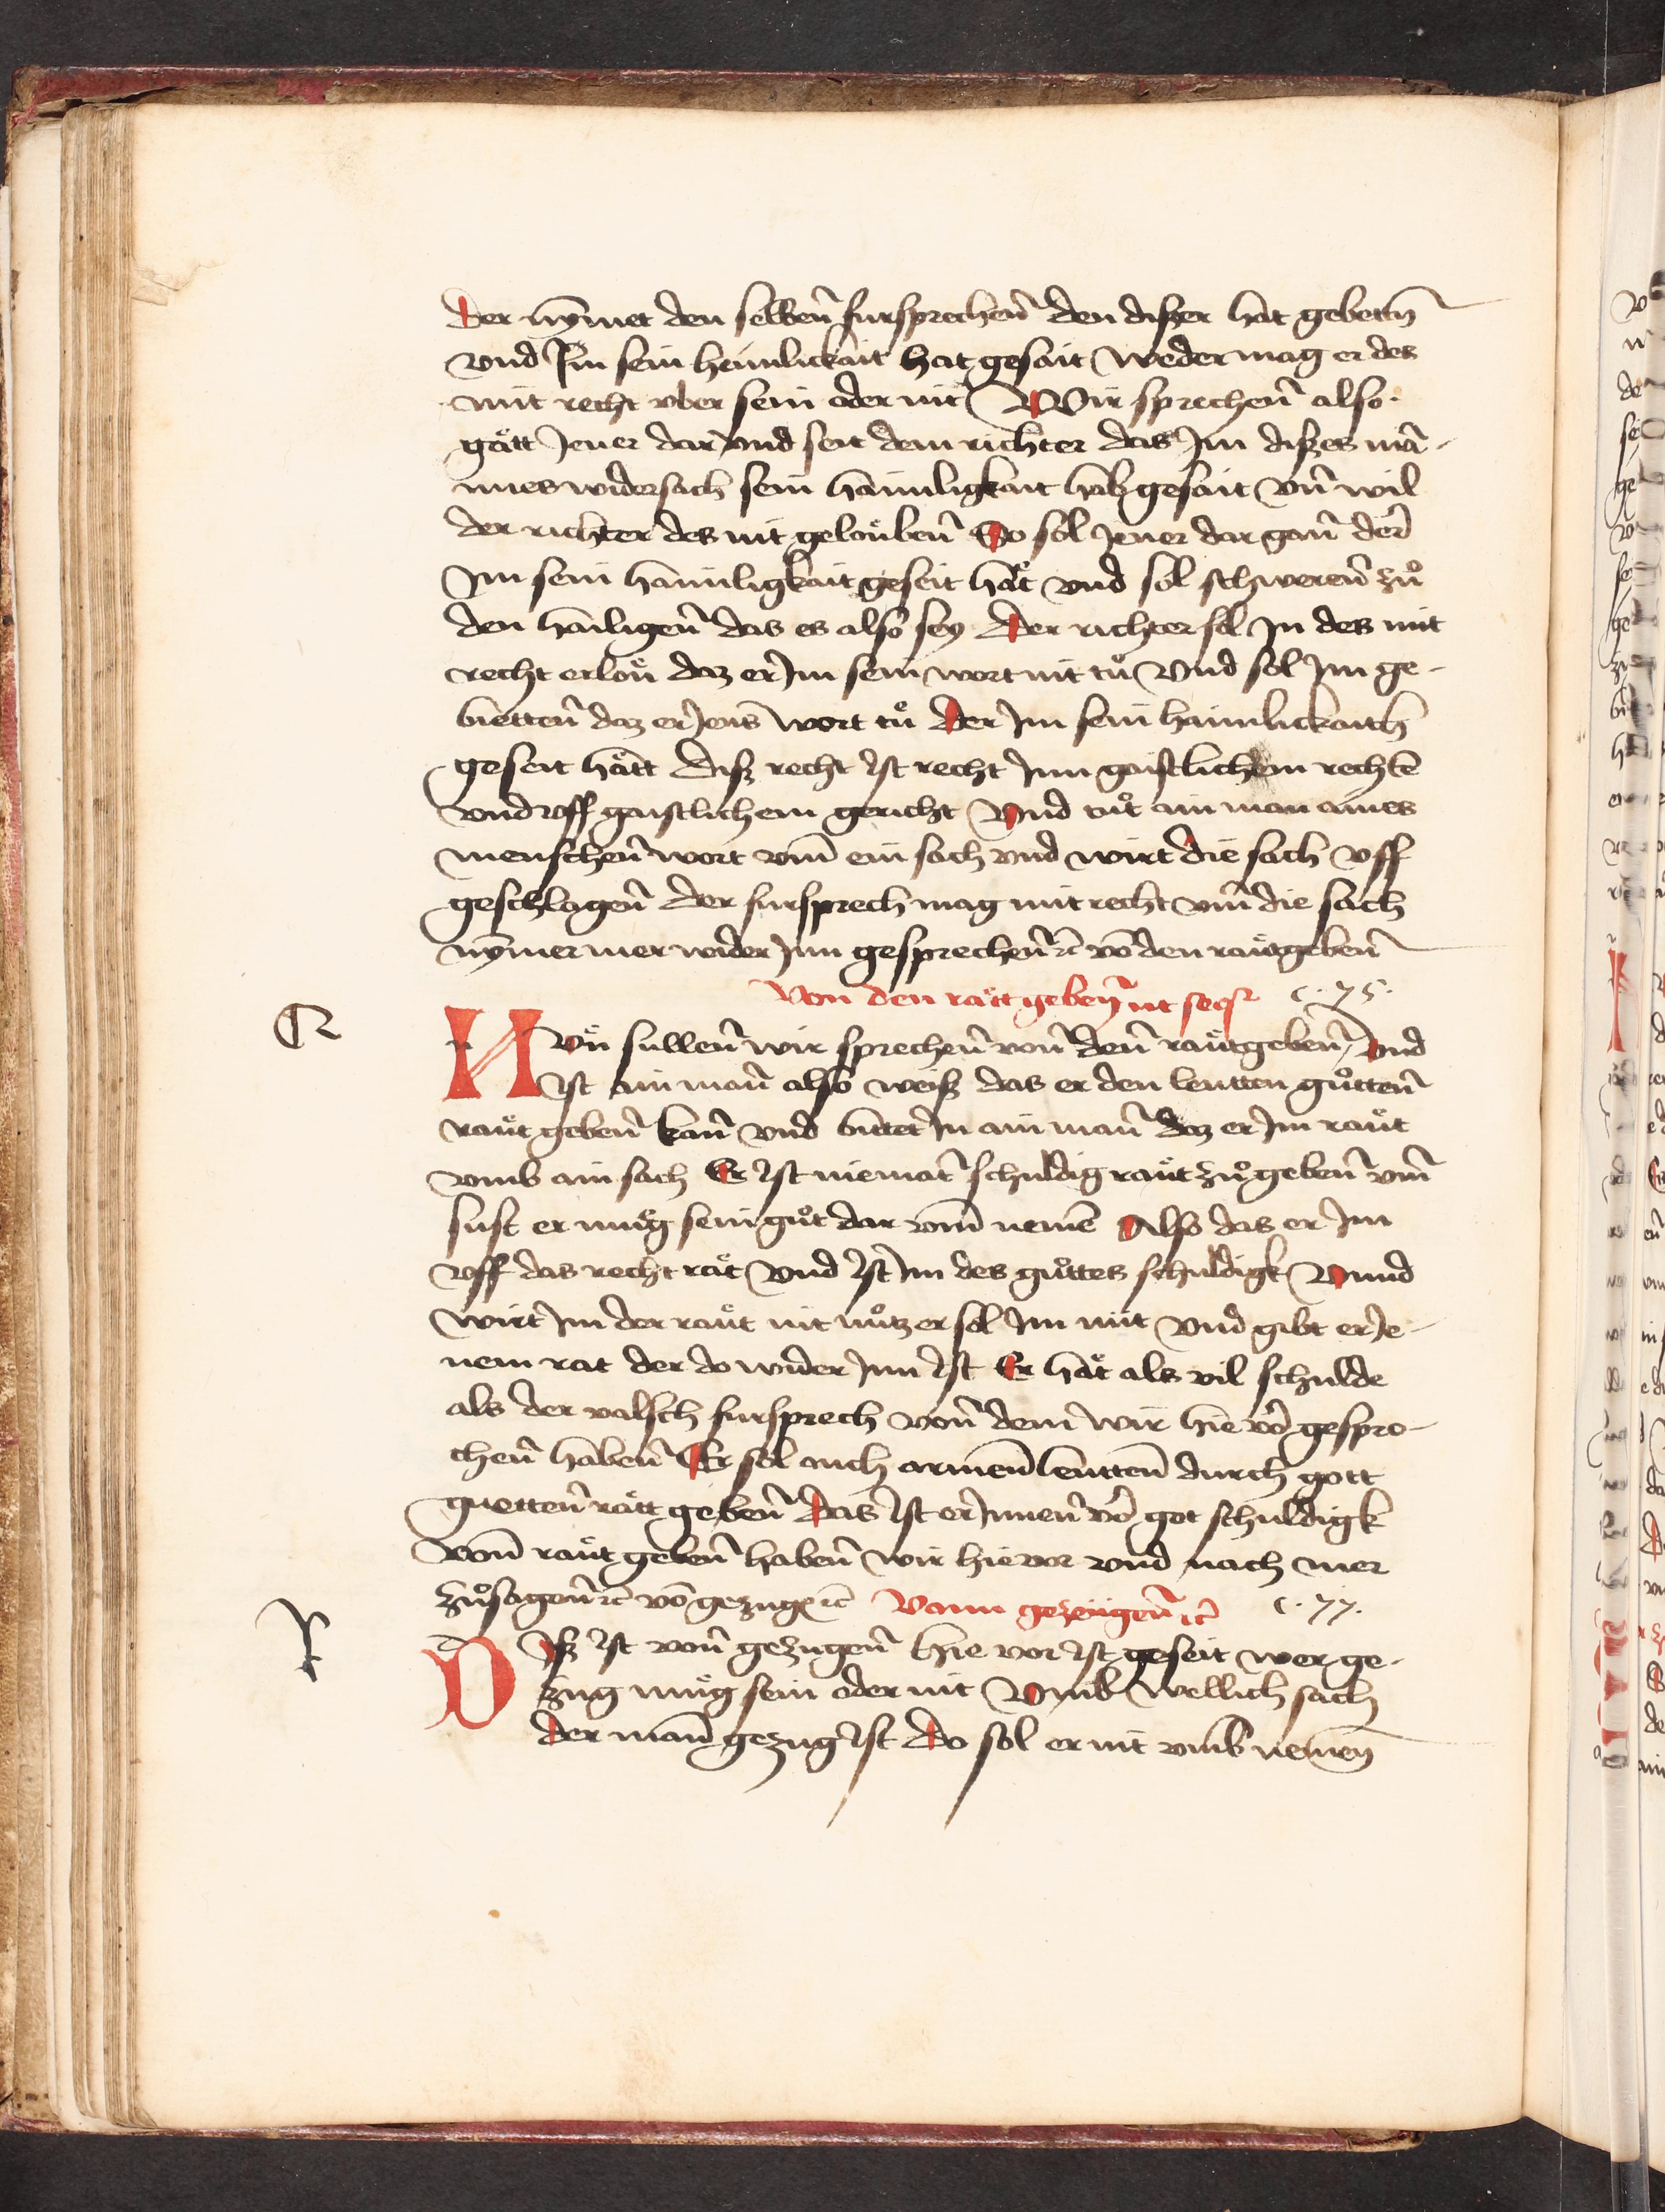 der nÿmet den selbenn̄ fursprechenn̄ den diszer hat gebettn̄
vnd Im sein heimlickait hat gesait weder mag er des
mit recht vber sein oder nit Wir sprechenn̄ also
gaͤtt Jener dar vnd seit dem richter das Im diszes mā-
nnes widersach sein haimligkait hab gesait vn̄ wil
der richter des nit geloubenn̄ So sol Jener dar gan̄ der
Im sein haimligkait geseit haͤt vnd sol schwerenn̄ zuͦ
den hailigenn̄ das es also sey Der richter sol In des mit
recht erlon̄ daz er Im sein wort nit tuͦ Vnd sol Im ge-
biettenn̄ daz er Jens wort tuͦ Der Im sein haimlickaith
geseit haͤtt Disz recht ist recht Inn gaistlichem rechtē
vnd vff gaistlichem gericht Vnd tuͦt ain man aines
menschenn̄ wort vm̄ ein sach vnd wirt die sach vff
geschlagenn̄ der fursprech mag mit recht vm̄ die sach
nÿmer mer wider Inn gesprechenn̄ ꝛc̄ vō den raͤtgebenn̄
Von den raͤtt gebenn̄ vt seqꝛ c. 75.
Nvͦn sullenn̄ wir sprechenn̄ vonn̄ denn̄ rauͤtgebenn̄ / Vnd
ist ain man̄ also weisz das er den leutten guͦttenn̄
rauͤt gebenn̄ kan̄ vnd bittet In ain man̄ daz er Im rauͤt
vmb ain sach Er ist niemāt schuldig rauͤt zuͦ gebenn̄ vm̄
sust er muͤg sein guͦt dar vm̄ nemē Also das er Im
vff das recht raͤt Vnd ist Im des guͦttes schuldigk Vnnd
wirt Im der rauͤt nit nuͦtz er sol Im nit vnd gibt er Je-
nem rat der do wider Inn ist Er haͤt als vil schulde
als der valsch fursprech vonn̄ dem wir hie vor gespro-
chenn̄ habenn̄ Er sol auch armenn̄ leuttenn̄ durch gott
guettenn̄ raͤtt gebenn̄ Das ist er Innenn̄ vor got schuldigk
Vonn̄ rauͤt gebenn̄ habenn̄ wir hie vor vnd nach mer
zuͦ sagenn̄ ꝛc̄ vō gezugē ꝛc̄ Vonn gezeugenn̄ ꝛc̄ c. 77.
Disz ist vonn̄ gezugenn̄ hie vor ist geseit wer ge-
zug muͤg sein oder nit Vmb wellich sach
der man̄ gezug ist do sol er nit vmb nemenn̄